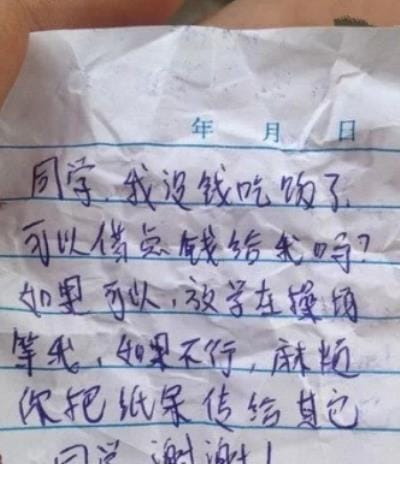 年 月 日
同学，我没钱吃饭了
可以借点钱给我吗？
如果可以，放学在操场
等我，如果不行，麻烦
你把纸条传给其它
同学，谢谢！